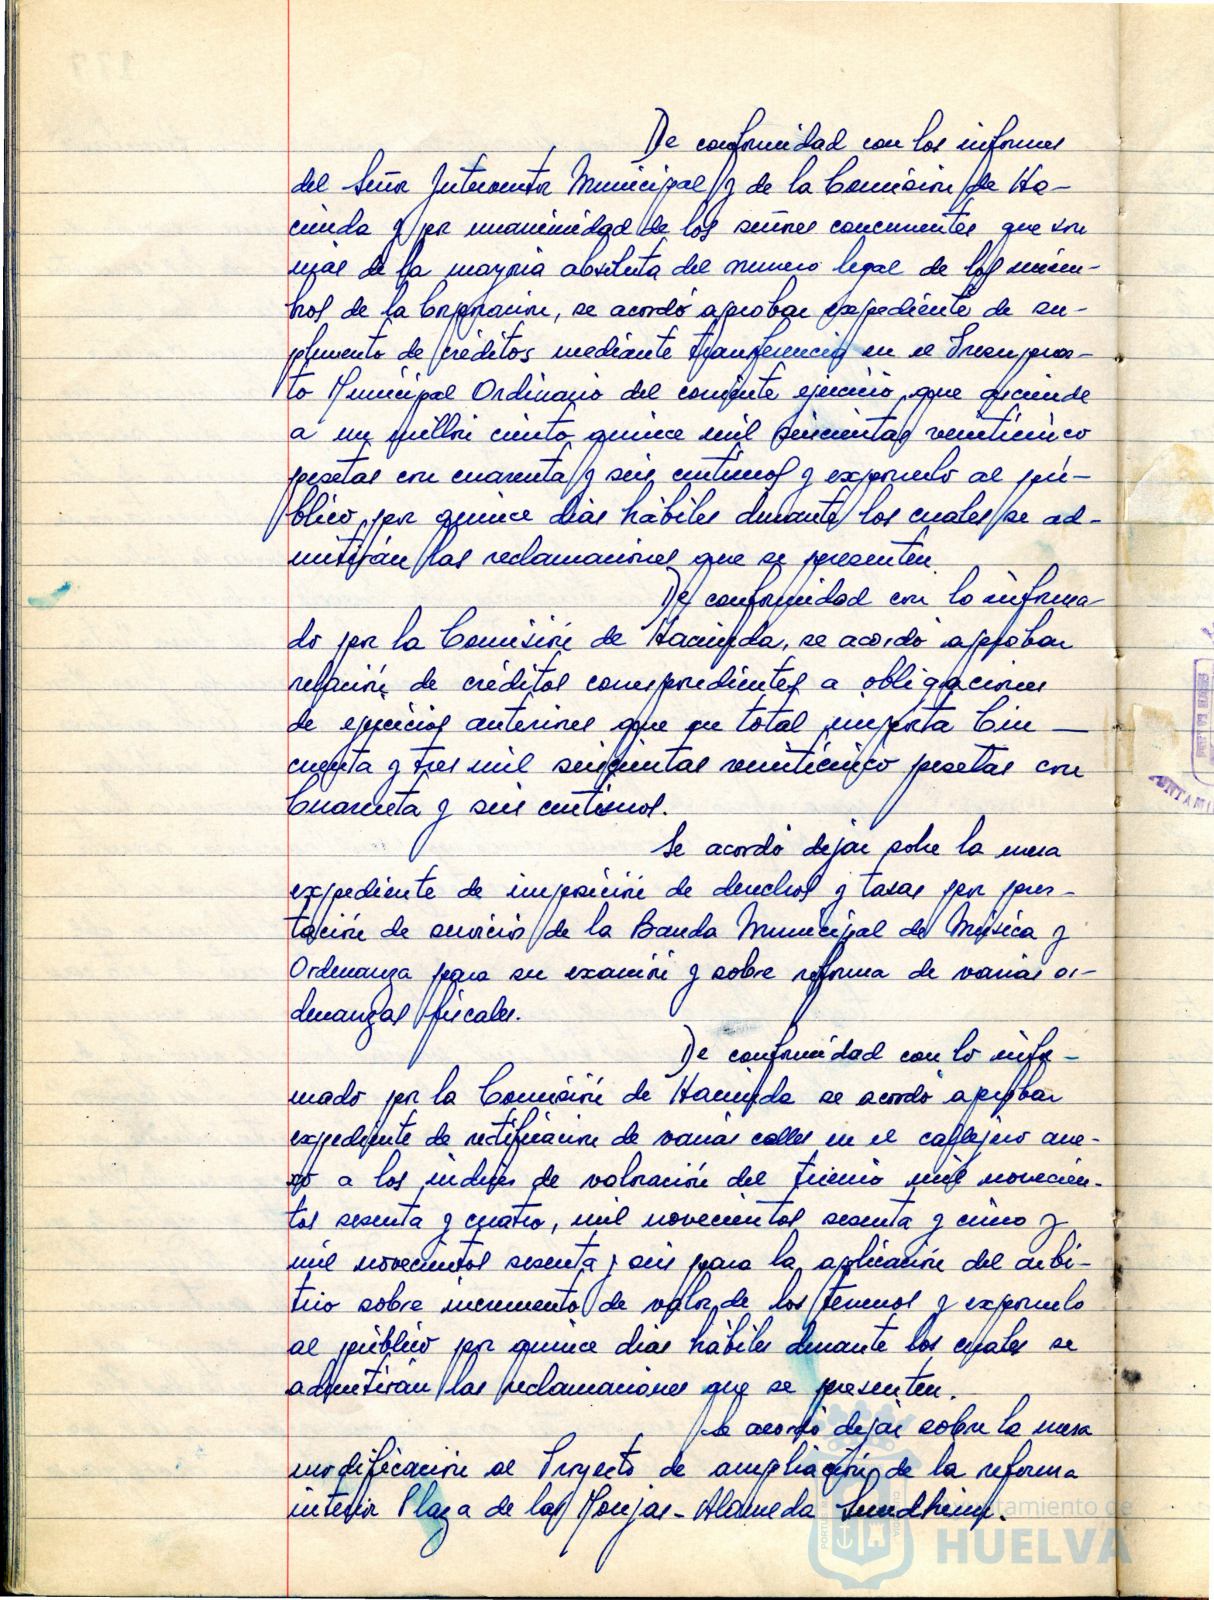 De conformidad con los informes
del Señor Interventor Municipal y de la Comisión de Ha-
cienda y por unanimidad de los señores concurrentes que son
más de la mayoría absoluta del número legal de los miem-
bros de la Corporación, se acordó aprobar expediente de su-
plemento de créditos mediante transferencia en el Presupues-
to Municipal Ordinario del corriente ejercicio, que asciende
a un millón ciento quince mil seiscientas veinticinco
pesetas con cuarenta y seis centimos y exponerlo al pú-
blico por quince dias hábiles durante los cuales se ad-
mitirán las reclamaciones que se presenten.
De conformidad con lo informa-
do por la Comisión de Hacienda, se acordó aprobar
relación de créditos correspondientes a obligaciones
de ejercicios anteriores que en total importa Cin-
cuenta y tres mil seiscientas veinticinco pesetas con
Cuarenta y seis centimos.
Se acordó dejar sobre la mesa
expediente de imposición de derechos y tasas por pres-
tación de servicios de la Banda Municipal de Música y
Ordenanza para su examen y sobre reforma de varias or-
denanzas fiscales.
De conformidad con lo infor-
mado por la Comisión de Hacienda se acordó aprobar
expediente de rectificación de varias calles en el callejero ane-
xo a los indices de valoración del trienio mil novecien-
tos sesenta y cuatro, mil novecientos sesenta y cinco y
mil novecientos sesenta y seis para la aplicación del arbi-
trio sobre incremento de valor de los terrenos y exponerlo
al público por quince dias hábiles durante los cuales se
admitirán las reclamaciones que se presenten.
Se acordó dejar sobre la mesa
modificación al Proyecto de ampliación de la reforma
interior Plaza de las Monjas-Alameda Sundheim.
Ayuntamiento de
HUELVA